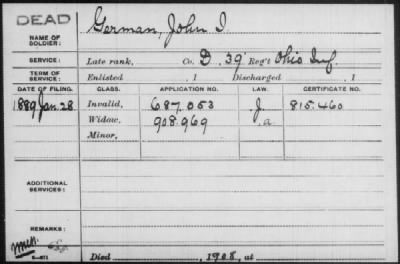 DEAD
NAME OF SOLDIER: German, John I.
SERVICE: Late rank, Co. D. 39 Reg't Ohio Inf.
TERM OF SERVICE: Enlisted , 1 Discharged , 1
DATE OF FILING. CLASS. APPLICATION NO. LAW. CERTIFICATE NO.
1889 Jan. 28. Invalid, 687.053 J. 815.460
Widow, 908.969 a
Minor,
ADDITIONAL SERVICES:
REMARKS:
Died , 1908, at